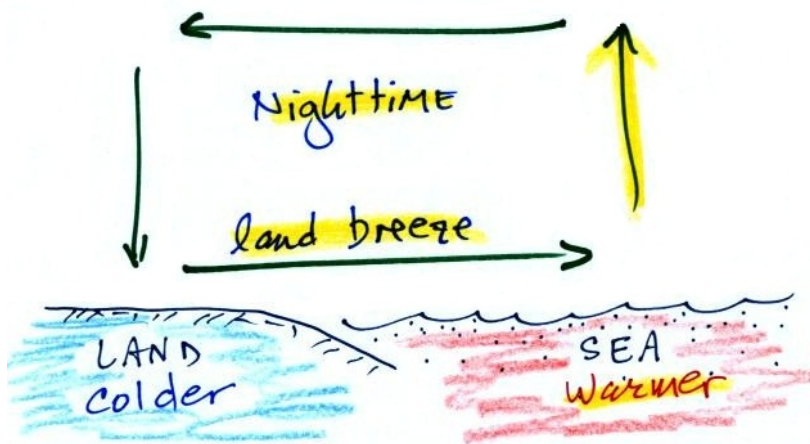 Nighttime
land breeze
LAND
colder
SEA
warmer